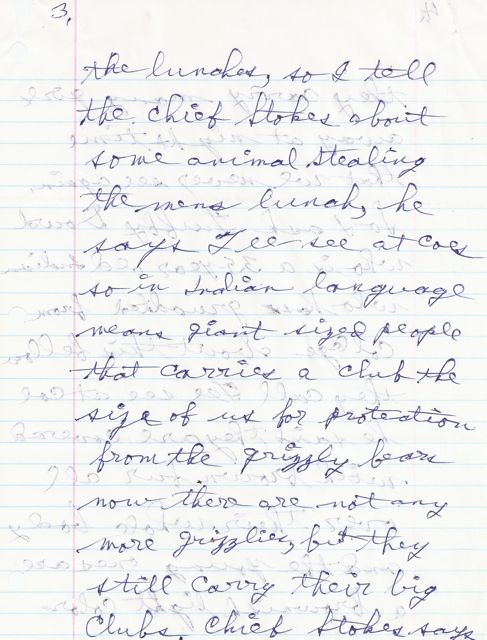 3,
the lunches, so I tell
the chief Stokes about
some animal stealing
the mens lunch, he
says Tee see at Coes
so in Indian language
means giant sized people
that carries a club the
size of us for protection
from the grizzly bears
now there are not any
more grizzlies, but they
still carry their big
Clubs. Chief Stokes says